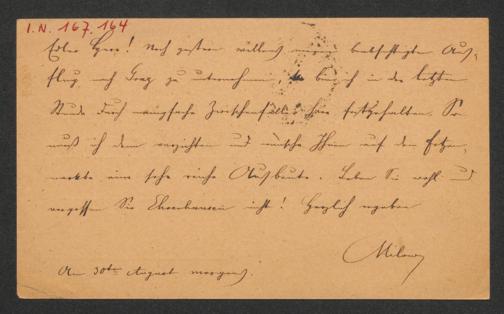 I.N. 167.164
Edler Herr! Noch gestern willens, meinen beabsichtigten Aus-
flug nach Graz zu unternehmen, bin ich in der letzten
Stunde durch mehrfache Zwischenfälle hier festgehalten. So
muß ich denn verzichten und wünsche Ihnen auf den
eine sehr reiche Ausbeute. Leben Sie wohl und
vergessen Sie nicht! Herzlich ergeben
Milow
Am 30ten August morgens.